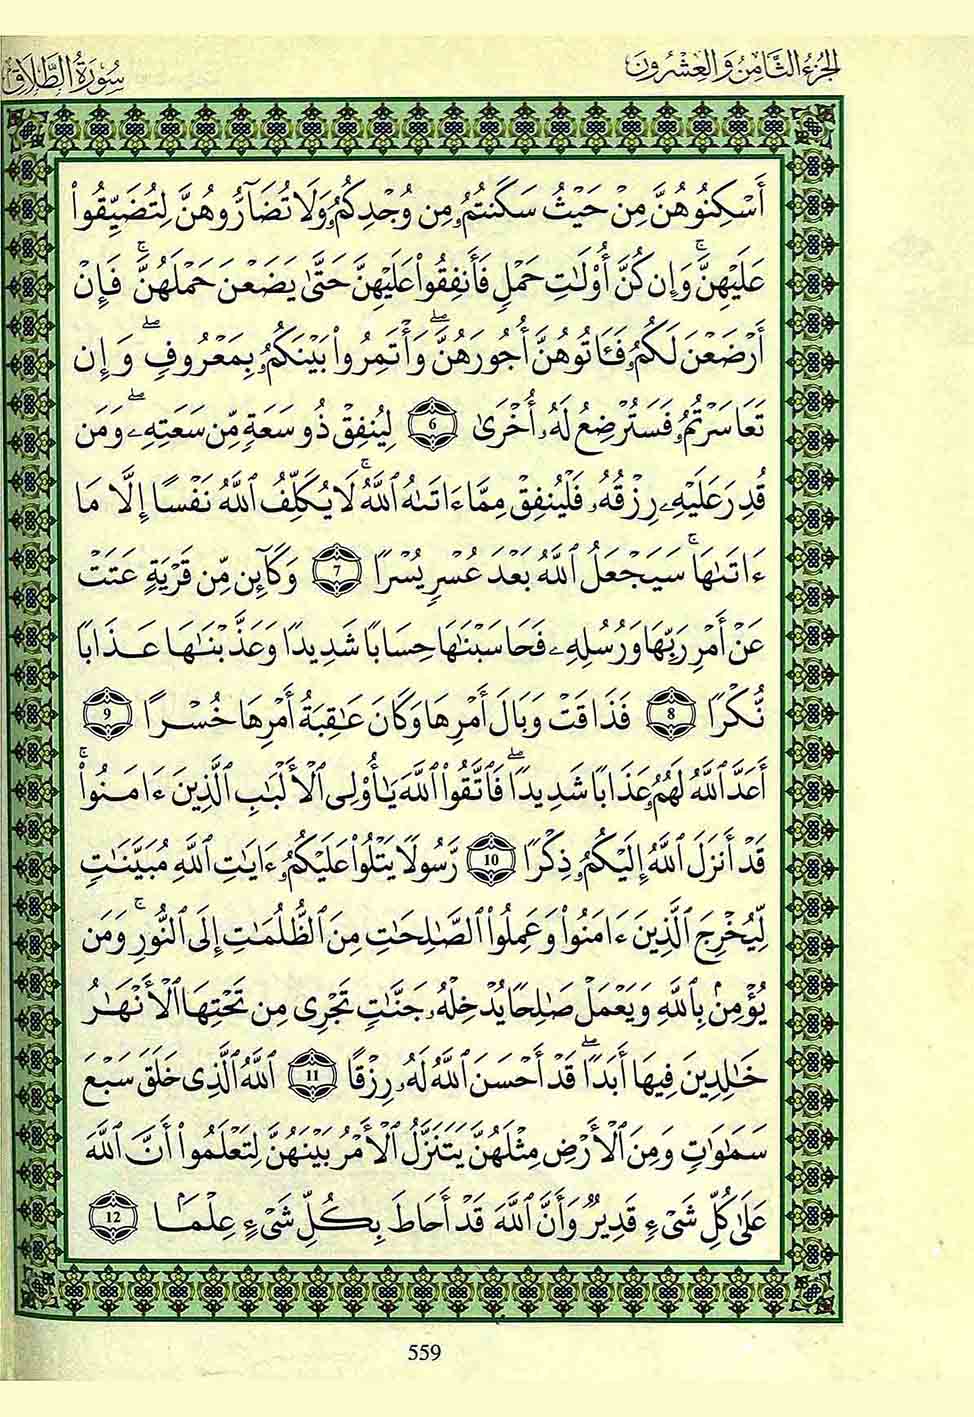 الجزء الثامن والعشرون
سورة الطلاق
أَسْكِنُوهُنَّ مِنْ حَيْثُ سَكَنتُمُۥ مِن وُجْدِكُمُۥ وَلَا تُضَآرُّوهُنَّ لِتُضَيِّقُوا۟
عَلَيْهِنَّۚ وَإِن كُنَّ أُو۟لَٰتِ حَمْلٍ فَأَنفِقُوا۟ عَلَيْهِنَّ حَتَّىٰ يَضَعْنَ حَمْلَهُنَّۚ فَإِنْ
أَرْضَعْنَ لَكُمُۥ فَـَٔاتُوهُنَّ أُجُورَهُنَّۖ وَأْتَمِرُوا۟ بَيْنَكُمُۥ بِمَعْرُوفٍۖ وَإِن
تَعَاسَرْتُمُۥ فَسَتُرْضِعُ لَهُۥ أُخْرَىٰ 6 لِيُنفِقْ ذُو سَعَةٍ مِّن سَعَتِهِۦۖ وَمَن
قُدِرَ عَلَيْهِۦ رِزْقُهُۥ فَلْيُنفِقْ مِمَّا ءَاتَىٰهُ ٱللَّهُۚ لَا يُكَلِّفُ ٱللَّهُ نَفْسًا إِلَّا مَا
ءَاتَىٰهَاۚ سَيَجْعَلُ ٱللَّهُ بَعْدَ عُسْرٍ يُسْرًا 7 وَكَآئِن مِّن قَرْيَةٍ عَتَتْ
عَنْ أَمْرِ رَبِّهَا وَرُسُلِهِۦ فَحَاسَبْنَٰهَا حِسَابًا شَدِيدًا وَعَذَّبْنَٰهَا عَذَابًا
نُّكْرًا 8 فَذَاقَتْ وَبَالَ أَمْرِهَا وَكَانَ عَٰقِبَةُ أَمْرِهَا خُسْرًا 9
أَعَدَّ ٱللَّهُ لَهُمُۥ عَذَابًا شَدِيدًاۖ فَٱتَّقُوا۟ ٱللَّهَ يَٰٓأُو۟لِى ٱلْأَلْبَٰبِ ٱلَّذِينَ ءَامَنُوا۟ۚ
قَدْ أَنزَلَ ٱللَّهُ إِلَيْكُمُۥ ذِكْرًا 10 رَّسُولًا يَتْلُوا۟ عَلَيْكُمُۥ ءَايَٰتِ ٱللَّهِ مُبَيَّنَٰتٍ
لِّيُخْرِجَ ٱلَّذِينَ ءَامَنُوا۟ وَعَمِلُوا۟ ٱلصَّٰلِحَٰتِ مِنَ ٱلظُّلُمَٰتِ إِلَى ٱلنُّورِۚ وَمَن
يُؤْمِنۢ بِٱللَّهِ وَيَعْمَلْ صَٰلِحًا يُدْخِلْهُۥ جَنَّٰتٍ تَجْرِى مِن تَحْتِهَا ٱلْأَنْهَٰرُ
خَٰلِدِينَ فِيهَا أَبَدًاۖ قَدْ أَحْسَنَ ٱللَّهُ لَهُۥ رِزْقًا 11 ٱللَّهُ ٱلَّذِى خَلَقَ سَبْعَ
سَمَٰوَٰتٍ وَمِنَ ٱلْأَرْضِ مِثْلَهُنَّ يَتَنَزَّلُ ٱلْأَمْرُ بَيْنَهُنَّ لِتَعْلَمُوا۟ أَنَّ ٱللَّهَ
عَلَىٰ كُلِّ شَىْءٍ قَدِيرٌ وَأَنَّ ٱللَّهَ قَدْ أَحَاطَ بِكُلِّ شَىْءٍ عِلْمًۢا 12
559